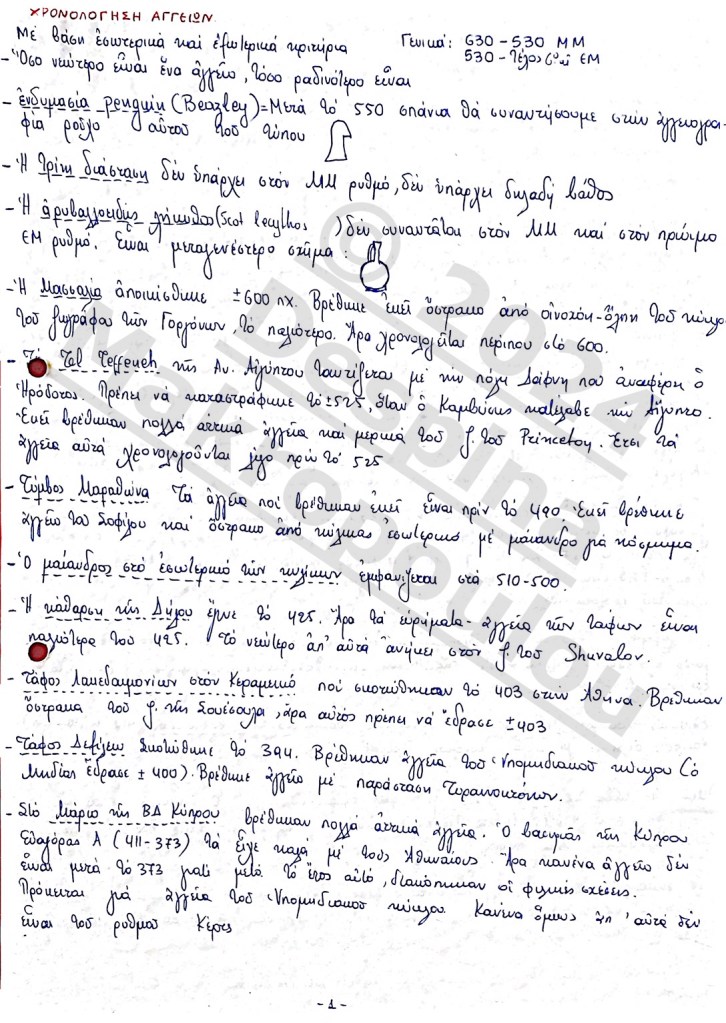 ΧΡΟΝΟΛΟΓΗΣΗ ΑΓΓΕΙΩΝ
Με βάση ἐσωτερικά καί ἐξωτερικά κριτήρια Γενικά: 630-530 ΜΜ
530-Τέλος ΕΜ
-Ὅσο νεώτερο εἶναι ἕνα ἀγγεῖο, τόσο ραδινότερο εἶναι
-ἐνδυμασία penguin (Beazley)=Μετά τό 550 σπάνια θά συναντήσουμε στήν ἀγγειογρα-
φία ροῦχο αὐτοῦ τοῦ τύπου
-Ἡ τρίτη διάσταση δέν ὑπάρχει στόν ΜΜ ρυθμό, δέν ὑπάρχει δηλαδή βάθος
-Ἡ ἀρυβαλλοειδής λήκυθος (Scot lecythos ) δέν συναντᾶται στόν ΜΜ καί στόν πρώιμο
ΕΜ ρυθμό. Εἶναι μεταγενέστερο σχῆμα:
-Ἡ Μασσαλία ἀποικίσθηκε ±600 πχ. Βρέθηκε ἐκεῖ ὄστρακο ἀπό οἰνοχόη-ὄλπη τοῦ κύκλο
τοῦ ζωγράφου τῶν Γοργόνων, τό παλιότερο. Ἄρα χρονολογεῖται περίπου στό 600.
-Τό Tel Teffeneh τῆς Αν. Αἰγύπτου ταυτίζεται με τήν πόλη Δάφνη πού ἀναφέρει ὁ
Ἡρόδοτος. Πρέπει νά καταστράφηκε τό ±525, ὅταν ὁ Καμβύσης κατέλαβε τήν Αἴγυπτο.
Ἐκεῖ βρέθηκαν πολλά ἀττικά ἀγγεῖα καί μερικά τοῦ ζ. τοῦ Princeton. Ἔτσι τά
ἀγγεῖα αὐτά χρονολογοῦνται λίγο πρίν τό 525
-Τύμβος Μαραθώνα Τά ἀγγεῖα πού βρέθηκαν ἐκεῖ εἶναι πρίν τό 490 Ἐκεῖ βρέθηκε
ἀγγεῖο τοῦ Σοφίλου καί ὄστρακο ἀπό κύλικα ἐσωτερικῶς μέ μαίανδρο γιά κόσμημα.
-Ὁ μαίανδρος στό ἐσωτερικό τῶν κυλίκων ἐμφανίζεται στά 510-500.
-Ἡ κάθαρση τῆς Δήλου ἔγινε τό 425. Ἄρα τά εὑρήματα-ἀγγεῖα τῶν τάφων εἶναι
παλιότερα τοῦ 425. Τό νεώτερο ἀπ' αὐτά ἀνήκει στόν ζ. τοῦ Shuvalov.
-Τάφος Λακεδαιμονίων στόν Κεραμεικό πού σκοτώθηκαν τό 403 στήν Ἀθήνα. Βρέθηκαν
ὄστρακα τοῦ ζ. τῆς Σουέσουλα, ἄρα αὐτός πρέπει νά ἔδρασε ±403
-Τάφος Δεξίλεω Σκοτώθηκε τό 394. Βρέθηκαν ἀγγεῖα τοῦ Ὑπομηδιακοῦ κύκλου (ὁ
Μηδίας ἔδρασε ±400). Βρέθηκε ἀγγεῖο μέ παράσταση Τυραννοκτόνων.
-Στό Μάριο τῆς ΒΔ Κύπρου βρέθηκαν πολλά ἀττικά ἀγγεῖα. Ὁ βασιλιάς τῆς Κύπρου
Εὐαγόρας Α (411-373) τά εἶχε καλά μέ τούς Ἀθηναίους. Ἄρα κανένα ἀγγεῖο δέν
εἶναι μετά τό 373 γιατί μετά τό ἔτος αὐτό, διακόπηκαν οἱ φιλικές σχέσεις.
Πρόκειται γιά ἀγγεῖα τοῦ Ὑπομηδιακοῦ κύκλου. Κανένα ὅμως ἀπ' αὐτά δέν
εἶναι τοῦ ρυθμοῦ Κέρτς
-1-
© 2024
Despina
Makropoulou